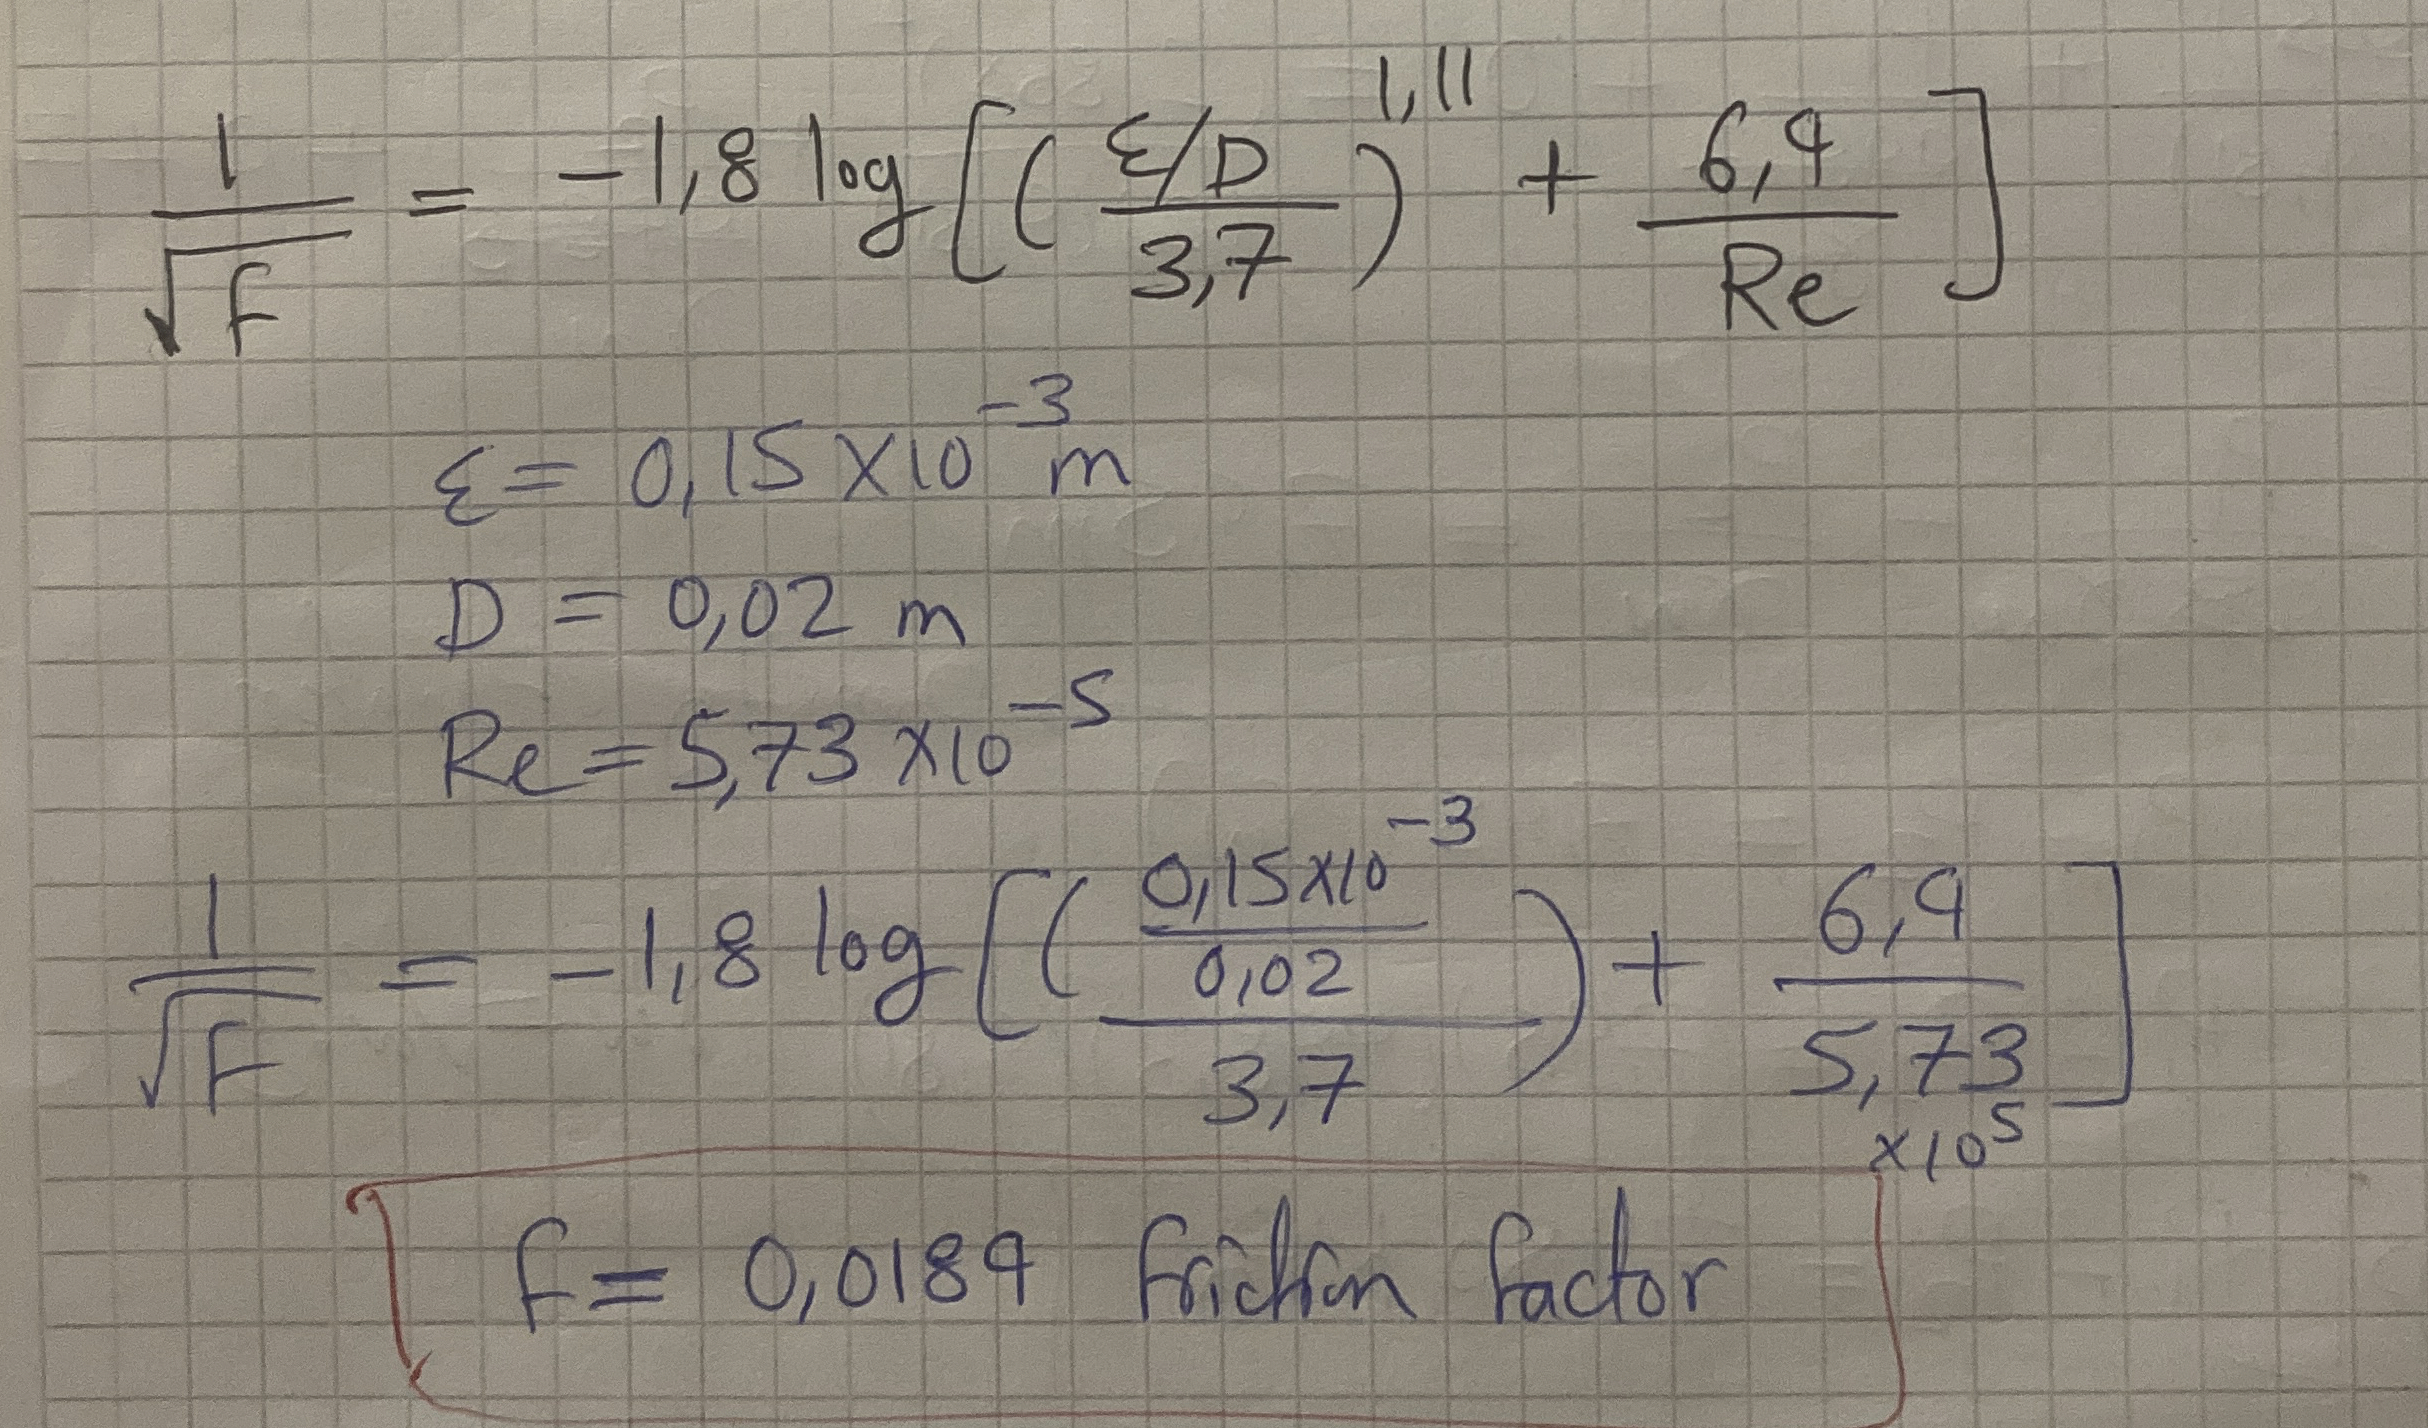 1/√f = -1,8 log[((ε/D)/3,7)^1,11 + 6,9/Re]
ε = 0,15 x10^-3 m
D = 0,02 m
Re = 5,73 x10^-5
1/√f = -1,8 log[((0,15x10^-3/0,02)/3,7) + 6,9/(5,73 x10^5)]
f = 0,0189 friction factor